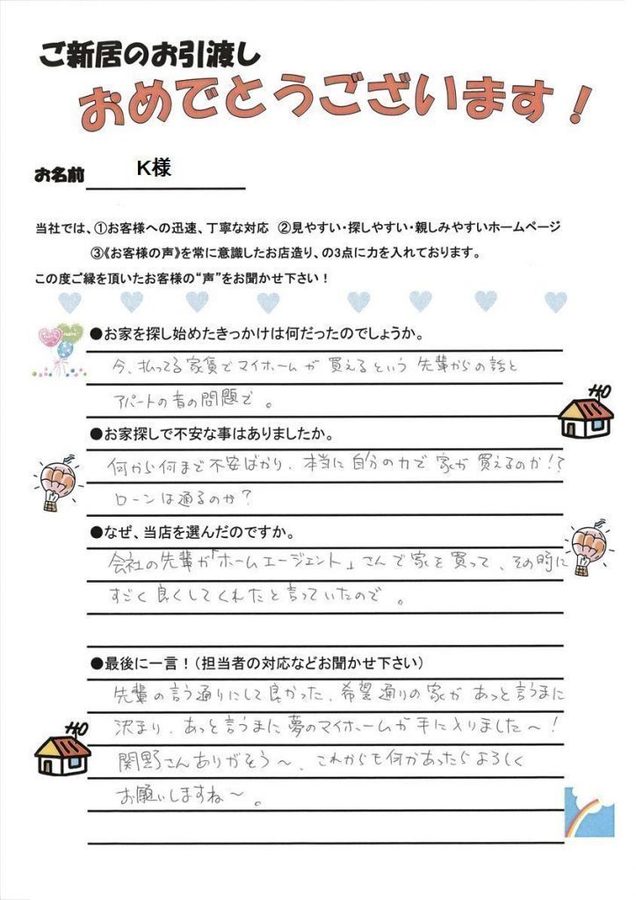 ご新居のお引渡し
おめでとうございます！
お名前 K様
当社では、①お客様への迅速、丁寧な対応 ②見やすい・探しやすい・親しみやすいホームページ
③《お客様の声》を常に意識したお店造り、の3点に力を入れております。
この度ご縁を頂いたお客様の“声”をお聞かせ下さい！
●お家を探し始めたきっかけは何だったのでしょうか。
今、払ってる家賃でマイホームが買えるという先輩からの話と
アパートの音の問題で。
●お家探しで不安な事はありましたか。
何から何まで不安ばかり、本当に自分の力で家が買えるのか!?
ローンは通るのか?
●なぜ、当店を選んだのですか。
会社の先輩が「ホームエージェント」さんで家を買って、その時に
すごく良くしてくれたと言っていたので。
●最後に一言！（担当者の対応などお聞かせ下さい）
先輩の言う通りにして良かった、希望通りの家があっと言うまに
決まり、あっと言うまに夢のマイホームが手に入りました～!
関野さんありがそう～、これからも何かあったらよろしく
お願いしますね～。